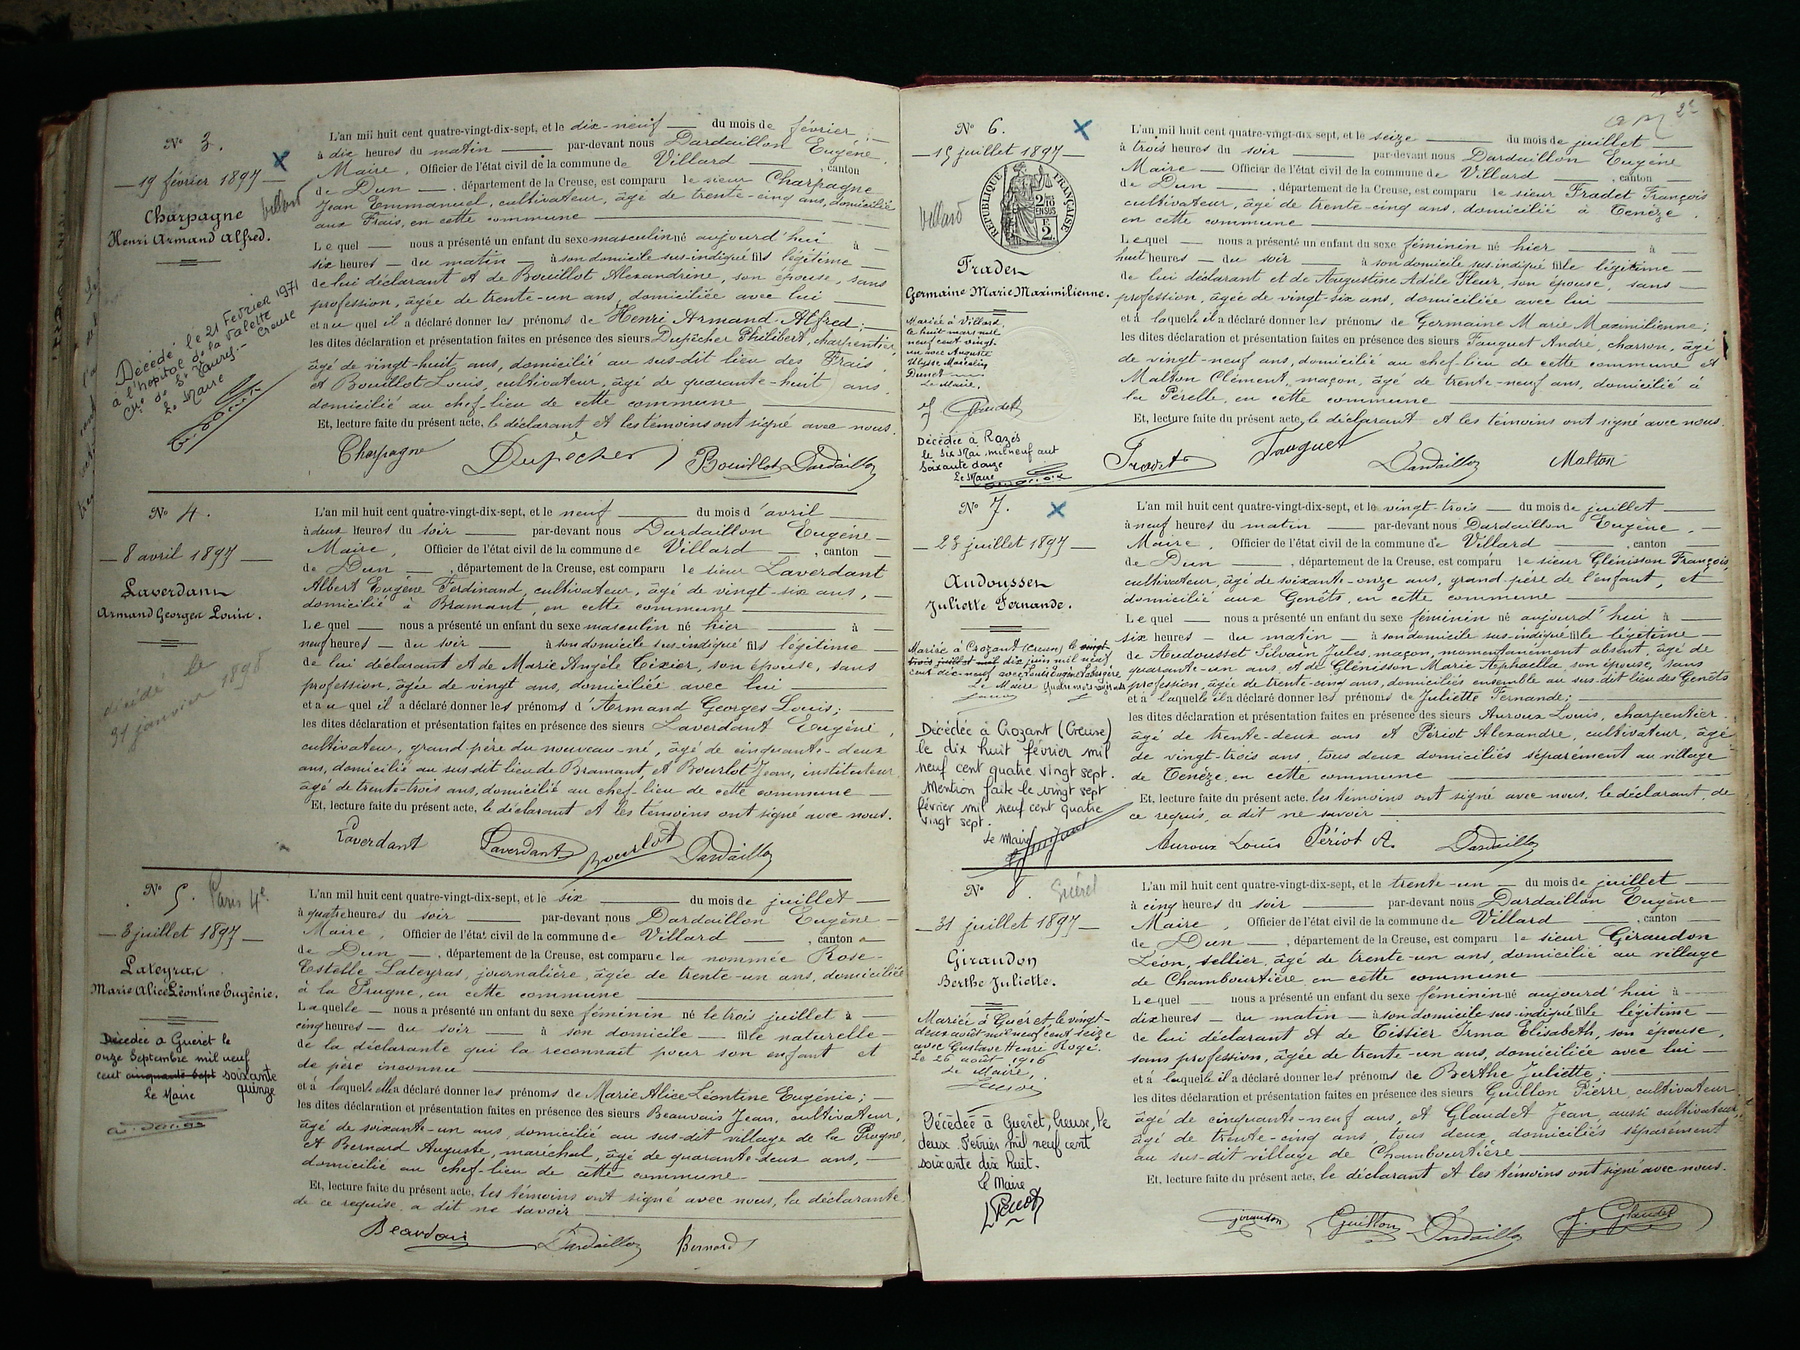 N° 3.
19 février 1897
Villard
Charpagne
Henri Armand Alfred.
Décédé le 21 Février 1971
à l'hôpital de la Valette
Cne de St Vaury - Creuse
Le Maire
L'an mil huit cent quatre-vingt-dix-sept, et le dix-neuf du mois de février
à dix heures du matin par-devant nous Dardaillon Eugène,
Maire, Officier de l'état civil de la commune de Villard, canton
de Dun, département de la Creuse, est comparu le sieur Charpagne
Jean Emmanuel, cultivateur, âgé de trente-cinq ans, domicilié
aux Frais, en cette commune
Lequel nous a présenté un enfant du sexe masculin né aujourd'hui à
six heures du matin à son domicile sus-indiqué fils légitime
de lui déclarant et de Bouillot Alexandrine, son épouse, sans
profession, âgée de trente-un ans, domiciliée avec lui
et au quel il a déclaré donner les prénoms de Henri Armand Alfred;
les dites déclaration et présentation faites en présence des sieurs Dupêcher Philibert, charpentier,
âgé de vingt-huit ans, domicilié au sus-dit lieu des Frais,
et Bouillot Louis, cultivateur, âgé de quarante-huit ans
domicilié au chef-lieu de cette commune
Et, lecture faite du présent acte, le déclarant et les témoins ont signé avec nous.
Charpagne Dupêcher Bouillot Dardaillon
N° 4.
8 avril 1897
Laverdant
Armand Georges Louis.
décédé le
31 janvier 1898
L'an mil huit cent quatre-vingt-dix-sept, et le neuf du mois d'avril
à deux heures du soir par-devant nous Dardaillon Eugène
Maire, Officier de l'état civil de la commune de Villard, canton
de Dun, département de la Creuse, est comparu le sieur Laverdant
Albert Eugène Ferdinand, cultivateur, âgé de vingt-six ans,
domicilié à Bramant, en cette commune
Lequel nous a présenté un enfant du sexe masculin né hier à
neuf heures du soir à son domicile sus-indiqué fils légitime
de lui déclarant et de Marie Angèle Tixier, son épouse, sans
profession, âgée de vingt ans, domiciliée avec lui
et au quel il a déclaré donner les prénoms d'Armand Georges Louis;
les dites déclaration et présentation faites en présence des sieurs Laverdant Eugène,
cultivateur, grand-père du nouveau-né, âgé de cinquante-deux
ans, domicilié au sus-dit lieu de Bramant, et Bourlot Jean, instituteur,
âgé de trente-trois ans, domicilié au chef-lieu de cette commune
Et, lecture faite du présent acte, le déclarant et les témoins ont signé avec nous.
Laverdant Laverdant Bourlot Dardaillon
N° 5. Paris 4e
3 juillet 1897
Lateyras
Marie Alice Léontine Eugénie.
Décédée à Guéret le
onze Septembre mil neuf
cent cinquante sept soixante
quinze
Le Maire
L'an mil huit cent quatre-vingt-dix-sept, et le six du mois de juillet
à quatre heures du soir par-devant nous Dardaillon Eugène
Maire, Officier de l'état civil de la commune de Villard, canton
de Dun, département de la Creuse, est comparue la nommée Rose-
Estelle Lateyras, journalière, âgée de trente-un ans, domiciliée
à la Prugne, en cette commune
Laquelle nous a présenté un enfant du sexe féminin né le trois juillet à
cinq heures du soir à son domicile fille naturelle
de la déclarante qui la reconnaît pour son enfant et
de père inconnu
et à laquelle elle a déclaré donner les prénoms de Marie Alice Léontine Eugénie;
les dites déclaration et présentation faites en présence des sieurs Beauvais Jean, cultivateur,
âgé de soixante-un ans, domicilié au sus-dit village de la Prugne,
et Bernard Auguste, maréchal, âgé de quarante-deux ans,
domicilié au chef-lieu de cette commune
Et, lecture faite du présent acte, les témoins ont signé avec nous, la déclarante
de ce requise, a dit ne savoir
Beauvais Dardaillon Bernard
2e
N° 6.
15 juillet 1897
Villard
RÉPUBLIQUE FRANÇAISE
2/10 EN SUS
2 F.
Fradet
Germaine Marie Maximilienne.
Mariée à Villard
le huit mars mil
neuf cent vingt-
un avec Auguste
Ulysse
Dunet
Le Maire,
Glaudet
Décédée à Razès
le Six Mai mil neuf cent
soixante douze
Le Maire
L'an mil huit cent quatre-vingt-dix-sept, et le seize du mois de juillet
à trois heures du soir par-devant nous Dardaillon Eugène
Maire Officier de l'état civil de la commune de Villard, canton
de Dun, département de la Creuse, est comparu le sieur Fradet François
cultivateur, âgé de trente-cinq ans, domicilié à Cenèze,
en cette commune
Lequel nous a présenté un enfant du sexe féminin né hier à
huit heures du soir à son domicile sus-indiqué fille légitime
de lui déclarant et de Augustine Adèle Fleur, son épouse, sans
profession, âgée de vingt-six ans, domiciliée avec lui
et à laquelle il a déclaré donner les prénoms de Germaine Marie Maximilienne;
les dites déclaration et présentation faites en présence des sieurs Fauguet André, charron, âgé
de vingt-neuf ans, domicilié au chef-lieu de cette commune et
Malton Clément, maçon, âgé de trente-neuf ans, domicilié à
la Pérelle, en cette commune
Et, lecture faite du présent acte, le déclarant et les témoins ont signé avec nous.
Fradet Fauguet Dardaillon Malton
N° 7.
23 juillet 1897
Audousset
Juliette Fernande.
Mariée à Crozant (Creuse) le vingt-
trois juillet mil dix juin mil neuf
cent dix-neuf avec
Le Maire
Décédée à Crozant (Creuse)
le dix huit février mil
neuf cent quatre vingt sept.
Mention faite le vingt sept
février mil neuf cent quatre
vingt sept.
Le Maire
L'an mil huit cent quatre-vingt-dix-sept, et le vingt trois du mois de juillet
à neuf heures du matin par-devant nous Dardaillon Eugène,
Maire, Officier de l'état civil de la commune de Villard, canton
de Dun, département de la Creuse, est comparu le sieur Glénisson François,
cultivateur, âgé de soixante-onze ans, grand-père de l'enfant, et
domicilié aux Genêts, en cette commune
Lequel nous a présenté un enfant du sexe féminin né aujourd'hui à
six heures du matin à son domicile sus-indiqué fille légitime
de Audousset Silvain Jules, maçon, momentanément absent, âgé de
quarante-un ans, et de Glénisson Marie Aphaella, son épouse, sans
profession, âgée de trente-cinq ans, domiciliés ensemble au sus-dit lieu des Genêts
et à laquelle il a déclaré donner les prénoms de Juliette Fernande;
les dites déclaration et présentation faites en présence des sieurs Auroux Louis, charpentier
âgé de trente-deux ans et Périot Alexandre, cultivateur, âgé
de vingt-trois ans, tous deux domiciliés séparément au village
de Cenèze, en cette commune
Et, lecture faite du présent acte, les témoins ont signé avec nous, le déclarant, de
ce requis, a dit ne savoir
Auroux Louis Périot A. Dardaillon
N° 8. Guéret
31 juillet 1897
Giraudon
Berthe Juliette.
Mariée à Guéret, le vingt-
deux août mil neuf cent seize
avec Gustave Henri Rogé.
Le 26 août 1916
Le Maire,
Décédée à Guéret, Creuse, le
deux Février mil neuf cent
soixante dix huit.
Le Maire
L'an mil huit cent quatre-vingt-dix-sept, et le trente-un du mois de juillet
à cinq heures du soir par-devant nous Dardaillon Eugène
Maire, Officier de l'état civil de la commune de Villard, canton
de Dun, département de la Creuse, est comparu le sieur Giraudon
Léon, sellier, âgé de trente-un ans, domicilié au village
de Chambourtière, en cette commune
Lequel nous a présenté un enfant du sexe féminin né aujourd'hui à
dix heures du matin à son domicile sus-indiqué fille légitime
de lui déclarant et de Tissier Irma Elisabeth, son épouse,
sans profession, âgée de trente-un ans, domiciliée avec lui
et à laquelle il a déclaré donner les prénoms de Berthe Juliette;
les dites déclaration et présentation faites en présence des sieurs Guillon Pierre, cultivateur
âgé de cinquante-neuf ans, et Glaudet Jean, aussi cultivateur,
âgé de trente-cinq ans, tous deux domiciliés séparément
au sus-dit village de Chambourtière
Et, lecture faite du présent acte, le déclarant et les témoins ont signé avec nous.
Giraudon Guillon Dardaillon J. Glaudet